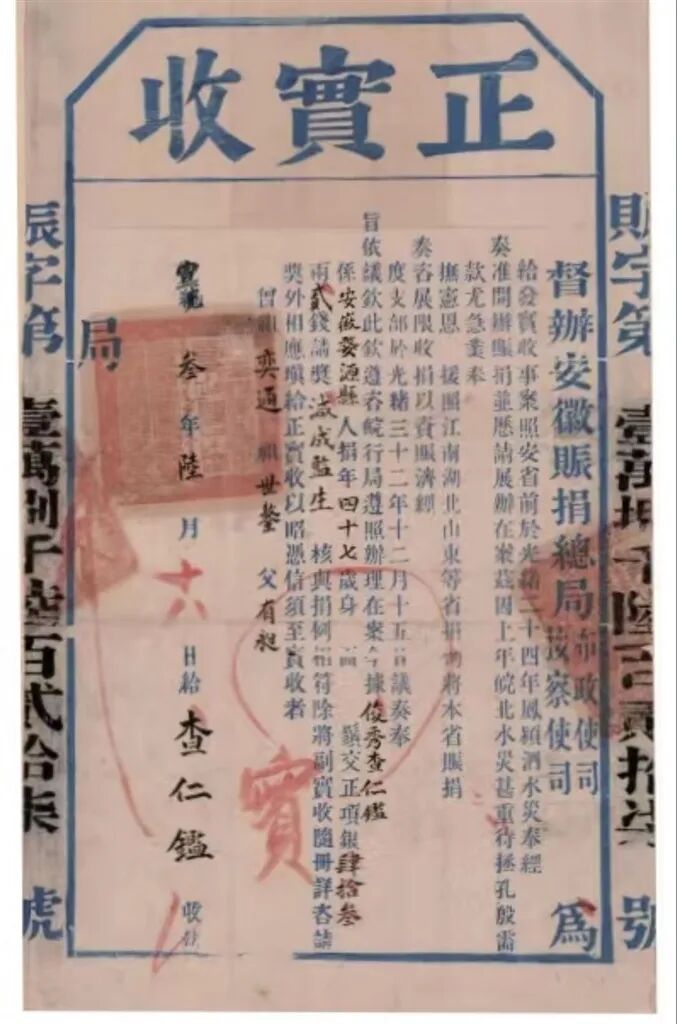 正實收
賑字第壹萬捌千陸百貳拾柒號
督辦安徽賑捐總局布政使司按察使司為
給發實收事案照安省前於光緒二十四年鳳潁泗水災奉經
奏准開辦賑捐並歷請展辦在案茲因上年皖北水災甚重待拯孔殷需
款尤急業奉
撫憲恩 援照江南湖北山東等省捐例將本省賑捐
奏咨展限收捐以資賑濟經
度支部於光緒三十二年十二月十五日議奏奉
旨依議欽此欽遵咨皖行局遵照辦理在案今據俊秀查仁鑑
係安徽婺源縣人捐年四十七歲身 面 鬚交正項銀肆拾叁
兩貳錢請獎減成監生 核與捐例相符除將副實收隨冊詳咨請
獎外相應填給正實收以昭憑信須至實收者
曾祖奕通 祖世鋆 父有昶
實
宣統叁年陸月十六日給查仁鑑收執
局
賑字第壹萬捌千陸百貳拾柒號